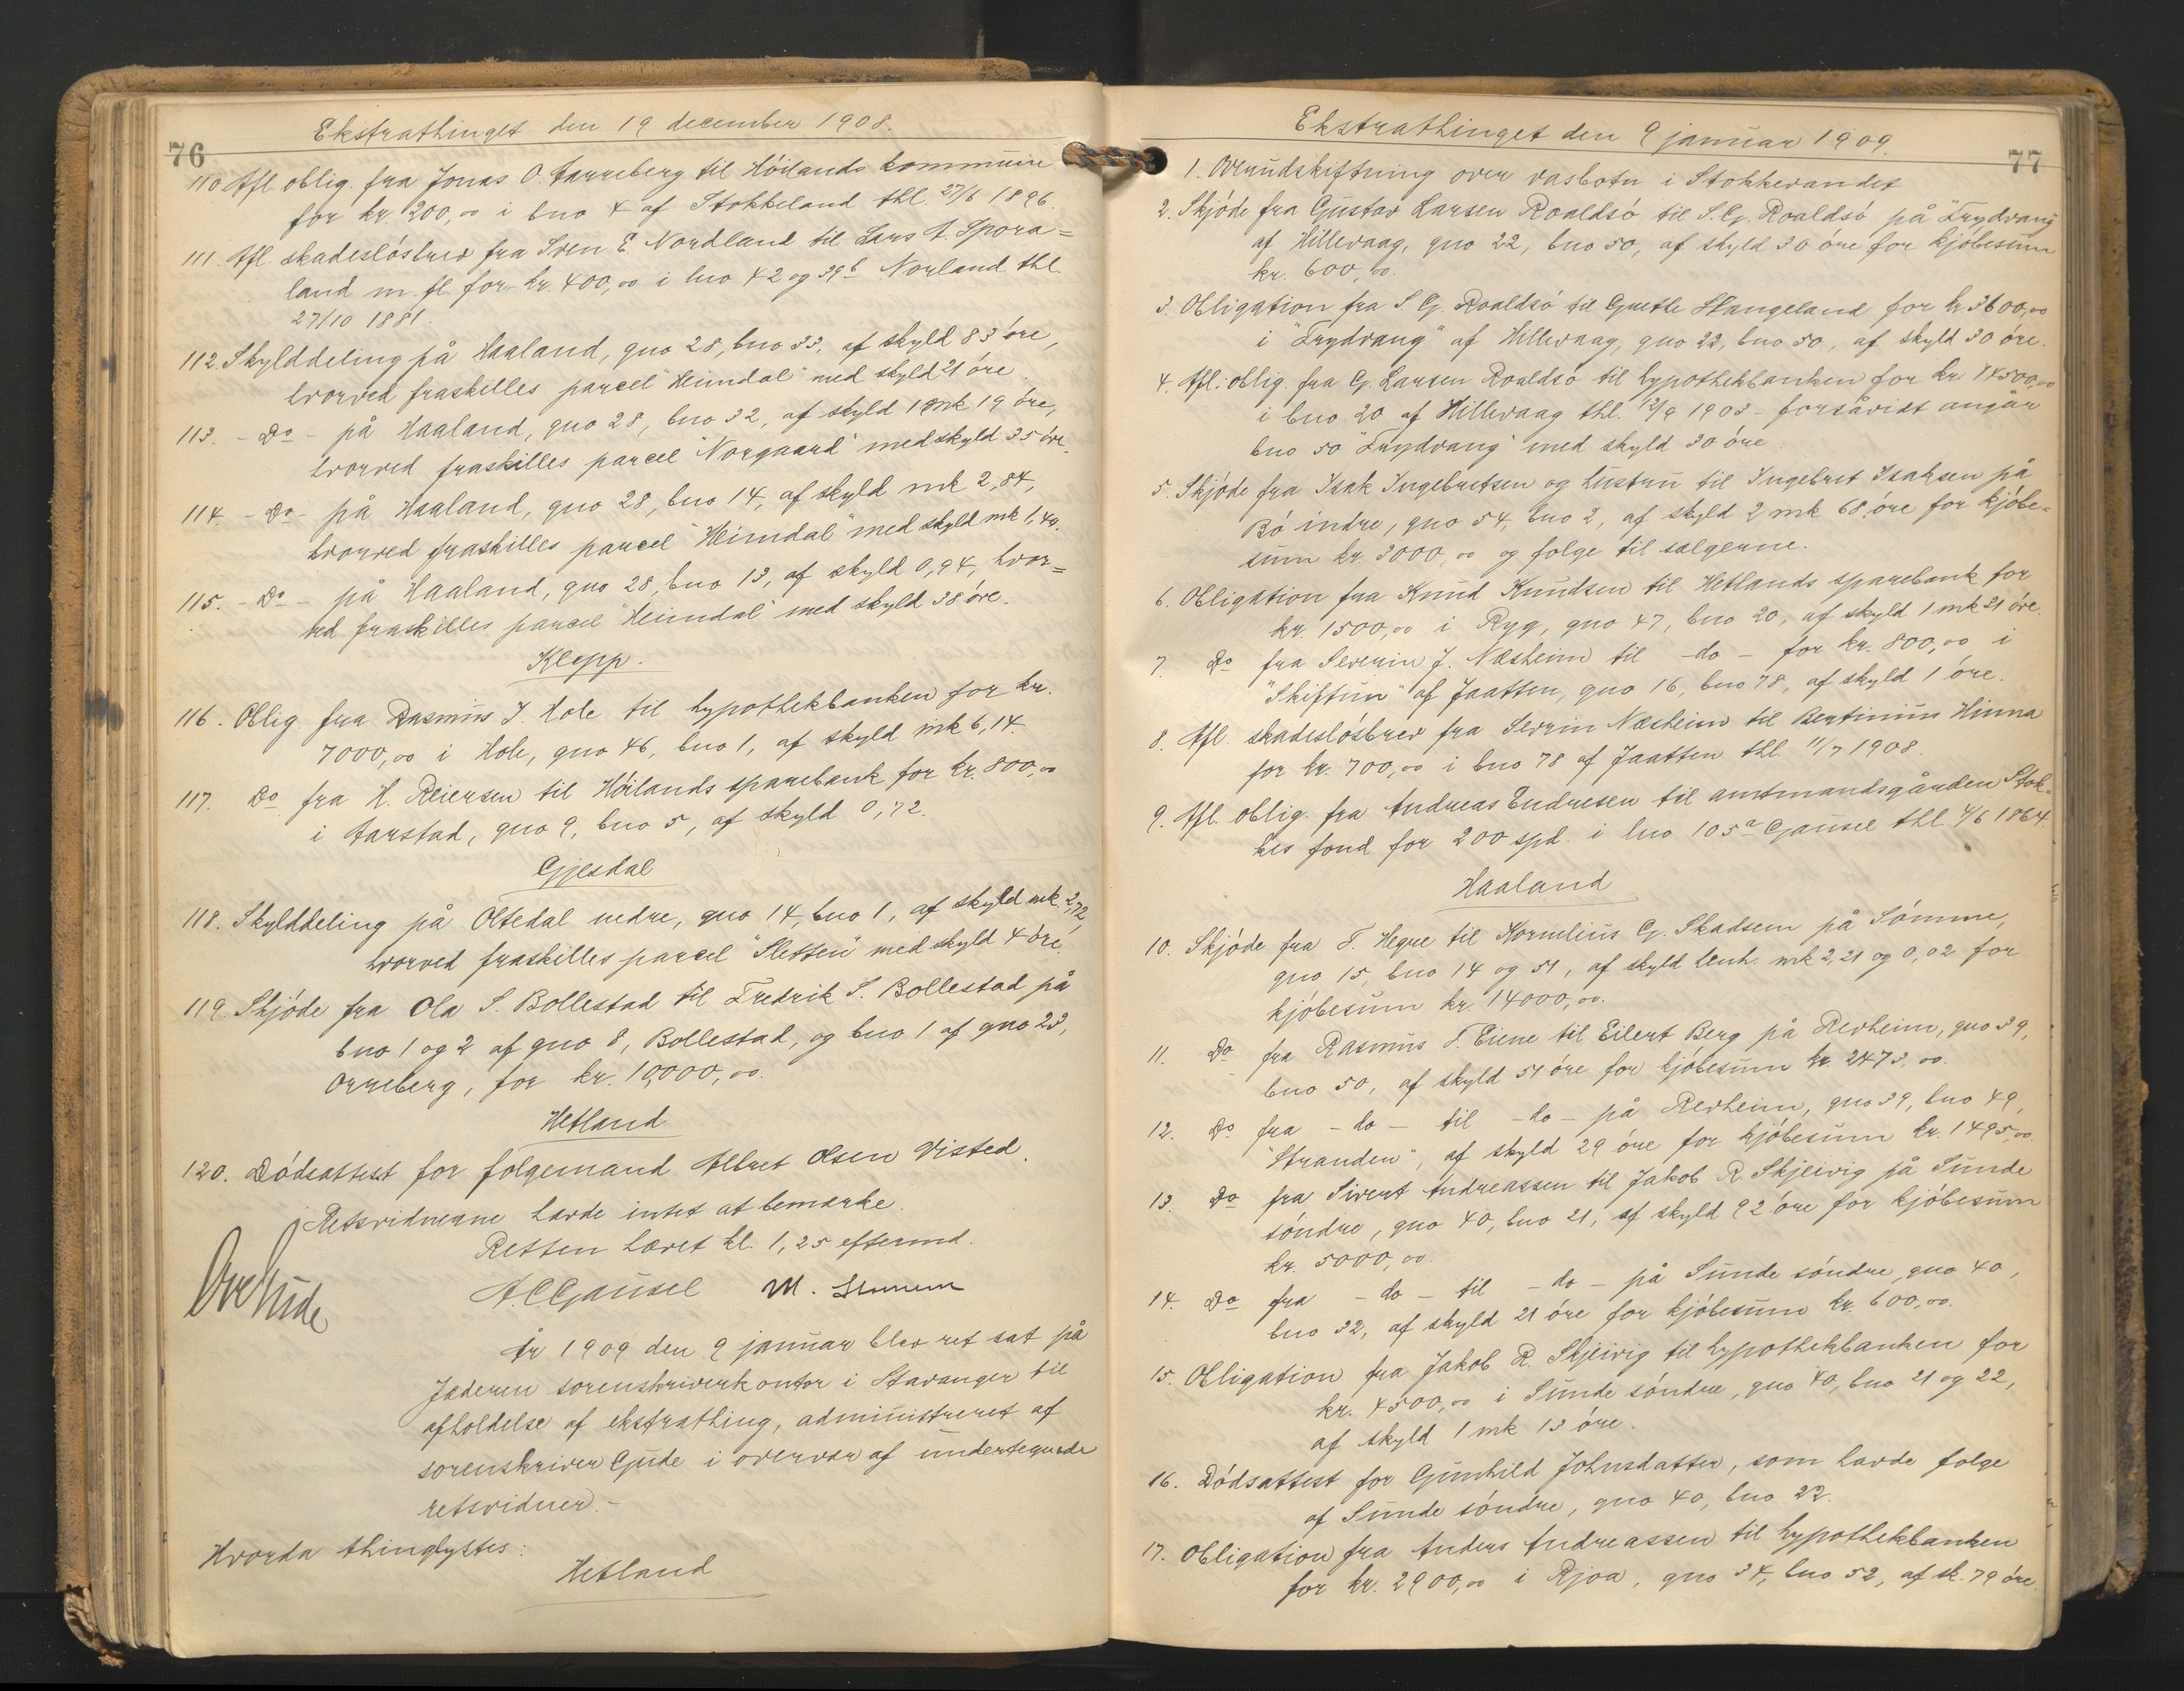 Ekstrathinget den 19 december 1908.
76
110 Afl. oblig. fra Jonas O. Aarreberg til Höilands kommune
for kr. 200,00 i lno 4 af Stokkeland thl. 27/6 1896.
111. Afl. skadeslösbrev fra Sven E. Nordland til Lars A. Spora=
land m. fl. for kr. 400,00 i lno 42 og 39b Norland thl.
27/10 1881.
112. Skylddeling på Haaland, gno 28, bno 33, af skyld 83 öre,
hvorved fraskilles parcel "Heimdal" med skyld 21 öre.
113. - Do - på Haaland, gno 28, bno 32, af skyld 1 mk 19 öre,
hvorved fraskilles parcel "Norgaard" med skyld 35 öre.
114. - Do - på Haaland, gno 28, bno 14, af skyld mk 2,84,
hvorved fraskilles parcel "Heimdal" med skyld mk 1,40.
115. - Do - på Haaland, gno 28, bno 13, af skyld 0,94, hvor=
ved fraskilles parcel "Heimdal" med skyld 38 öre.
Klepp.
116. Oblig. fra Rasmus J. Hole til hypothekbanken for kr.
7000,00 i Hole, gno 46, bno 1, af skyld mk 6,14.
117. Do fra H. Reiersen til Höilands sparebank for kr. 800,00
i Aarstad, gno 9, bno 5, af skyld 0,72.
Gjesdal
118. Skylddeling på Oltedal nedre, gno 14, bno 1, af skyld mk. 2,72,
hvorved fraskilles parcel "Sletten" med skyld 4 öre.
119. Skjöde fra Ola S. Bollestad til Fredrik S. Bollestad på
bno 1 og 2 af gno 8, Bollestad, og bno 1 af gno 23,
Orreberg, for kr. 10,000,00.
Hetland
120. Dödsattest for folgemand Albret Olsen Visted.
Retsvidnerne havde intet at bemærke.
Retten hævet kl. 1,25 eftermd.
Ove Gude
A. C. Gausel M.
År 1909 den 9 januar blev ret sat på
Jæderen sorenskriverkontor i Stavanger til
afholdelse af ekstrathing, administreret af
sorenskriver Gude i overvær af undertegnede
retsvidner.-
Hvorda thinglystes:
Hetland
Ekstrathinget den 9 januar 1909.
77
1. Overudskiftning over vasbotn i Stokkevandet
2. Skjöde fra Gustav Larsen Roaldsö til S. G. Roaldsö på "Frydvang"
af Hillevaag, gno 22, bno 50, af skyld 30 öre for kjöbesum
kr. 600,00.
3. Obligation fra S. G. Roaldsö til Stangeland for kr 3600,00
i "Frydvang" af Hillevaag, gno 22, bno 50, af skyld 30 öre.
4. Afl. oblig. fra G. Larsen Roaldsö til hypothekbanken for kr 14500,00
i bno 20 af Hillevaag thl. 12/9 1903 - forsåvidt angår
bno 50 "Frydvang" med skyld 30 öre.
5. Skjöde fra Isak Ingebretsen og hustru til Ingebret Isaksen på
Bö indre, gno 54, bno 2, af skyld 2 mk 68 öre for kjöbe-
sum kr. 3000,00 og folge til sælgerne.
6. Obligation fra Knud Knudsen til Hetlands sparebank for
kr. 1500,00 i Ryg, gno 47, bno 20, af skyld 1 mk 21 öre.
7. Do fra Severin J. Næsheim til - do - for kr. 800,00 i
"Skiftun" af Jaatten, gno 16, bno 78, af skyld 1 öre.
8. Afl. skadeslösbrev fra Sevrin Næsheim til Bertinius Hinna
for kr. 700,00 i bno 78 af Jaatten thl. 11/7 1908.
9. Afl. oblig. fra Andreas Endresen til amtmandsgården Stok-
kes fond for 200 spd. i lno 105a Gausel thl. 4/6 1864.
Haaland
10. Skjöde fra T. Hegre til Kornelius G. Skadsem på Sömme,
gno 15, bno 14 og 51, af skyld henh. mk 2,21 og 0,02 for
kjöbesum kr 14000,00.
11. Do fra Rasmus T. Eiene til Eilert Berg på Revheim, gno 39,
bno 50, af skyld 51 öre for kjöbesum kr. 2473,00.
12. Do fra - do - til - do - på Revheim, gno 39, bno 49,
"Stranden", af skyld 29 öre for kjöbesum kr. 1495,00.
13. Do fra Sivert Andreassen til Jakob R. Skjeivig på Sunde
söndre, gno 40, bno 21, af skyld 92 öre for kjöbesum
kr. 5000,00.
14. Do fra - do - til - do - på Sunde söndre, gno 40,
bno 32, af skyld 21 öre for kjöbesum kr. 600,00.
15. Obligation fra Jakob R. Skjeivig til hypothekbanken for
kr. 4500,00 i Sunde söndre, gno 40, bno 21 og 22,
af skyld 1 mk 13 öre.
16. Dödsattest for Gunhild Johnsdatter, som havde folge
af Sunde söndre, gno 40, bno 22.
17. Obligation fra Anders Andreassen til hypothekbanken
for kr. 2900,00 i Rjoa, gno 34, bno 52, af sk. 79 öre.